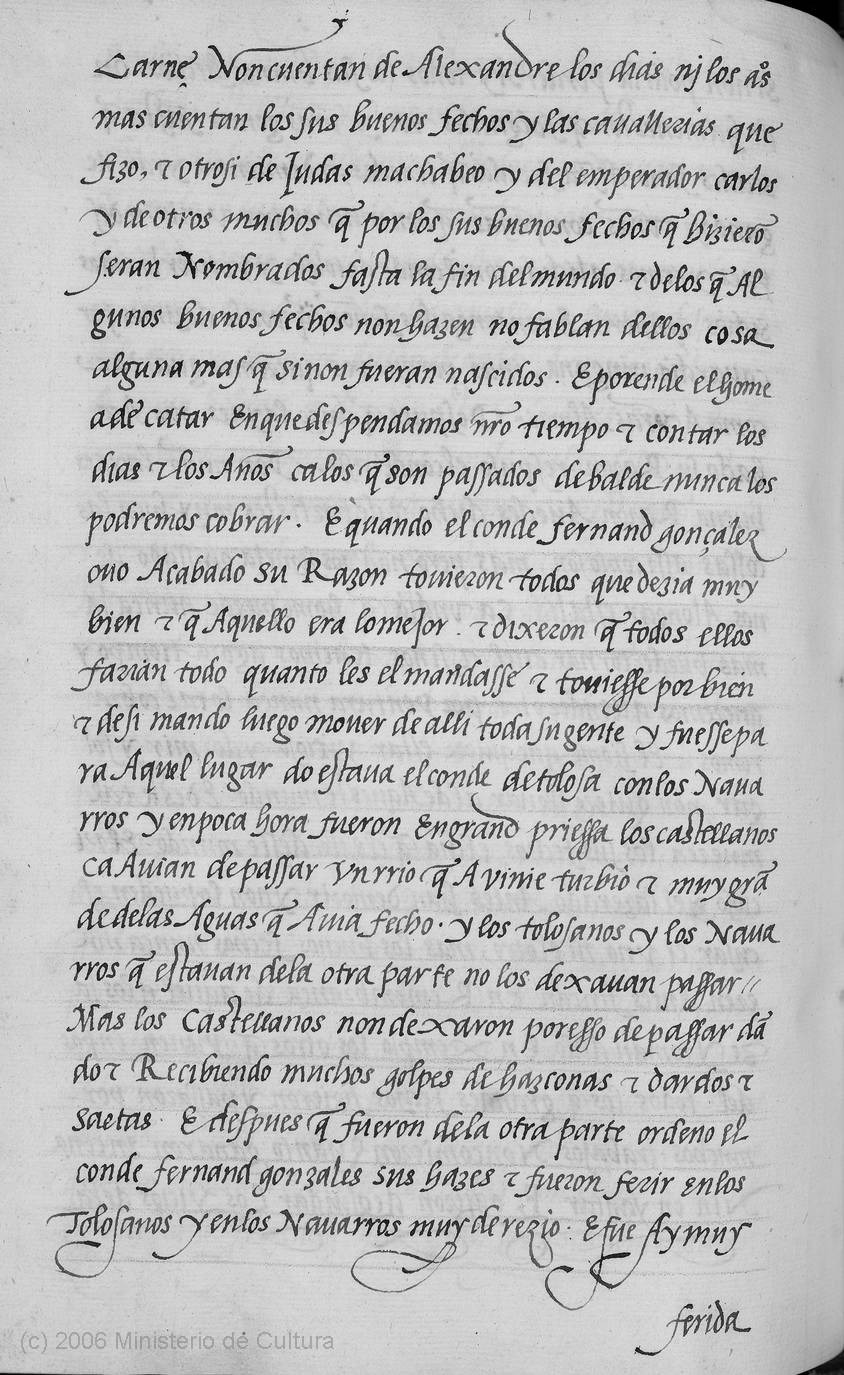 Carne Non cuentan de Alexandre los dias nj los aºs
mas cuentan los sus buenos fechos y las cauallerias que
fizo, τ otrosi de Judas machabeo y del emperador carlos
y de otros muchos q̃ por los sus buenos fechos q̃ hizierõ
seran Nombrados fasta la fin del mundo τ de los q̃ Al
gunos buenos fechos non hazen no fablan dellos cosa
alguna mas q̃ si non fueran nascidos. E por ende el home
a de catar En que despendamos nr̃o tiempo τ contar los
dias τ los Años ca los q̃ son passados de balde nunca los
podremos cobrar. E quando el conde fernand gonçalez
ouo Acabado su Razon touieron todos que dezia muy
bien τ q̃ Aquello era lo meJor. τ dixeron q̃ todos ellos
farian todo quanto les el mandasse τ touiesse por bien
τ desi mando luego mover de alli toda su gente y fuesse pa
ra Aquel lugar do estaua el conde de tolosa con los Naua
rros y en poca hora fueron En grand priessa los castellanos
ca Auian de passar vn rrio q̃ A vinie turbio τ muy grã
de de las Aguas q̃ Auia fecho. y los tolosanos y los Naua
rros q̃ estauan de la otra parte no los dexauan passar //
Mas los Castellanos non dexaron por esso de passar dã
do τ Recibiendo muchos golpes de hazconas τ dardos τ
saetas. E despues q̃ fueron de la otra parte ordeno el
conde fernand gonzales sus hazes τ fueron ferir en los
Tolosanos y en los Nauarros muy de rezio. E fue Ay muy
ferida
(c) 2006 Ministerio de Cultura